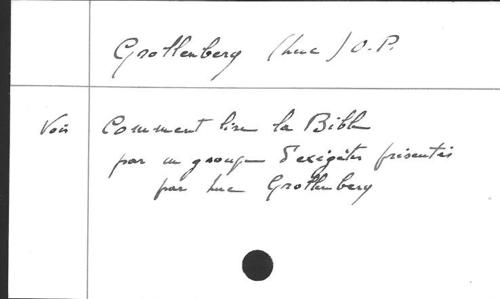 Grollenberg (Luc) O.P.
Voir Comment lire la Bible
par un groupe d'exégètes présentés
par Luc Grollenberg